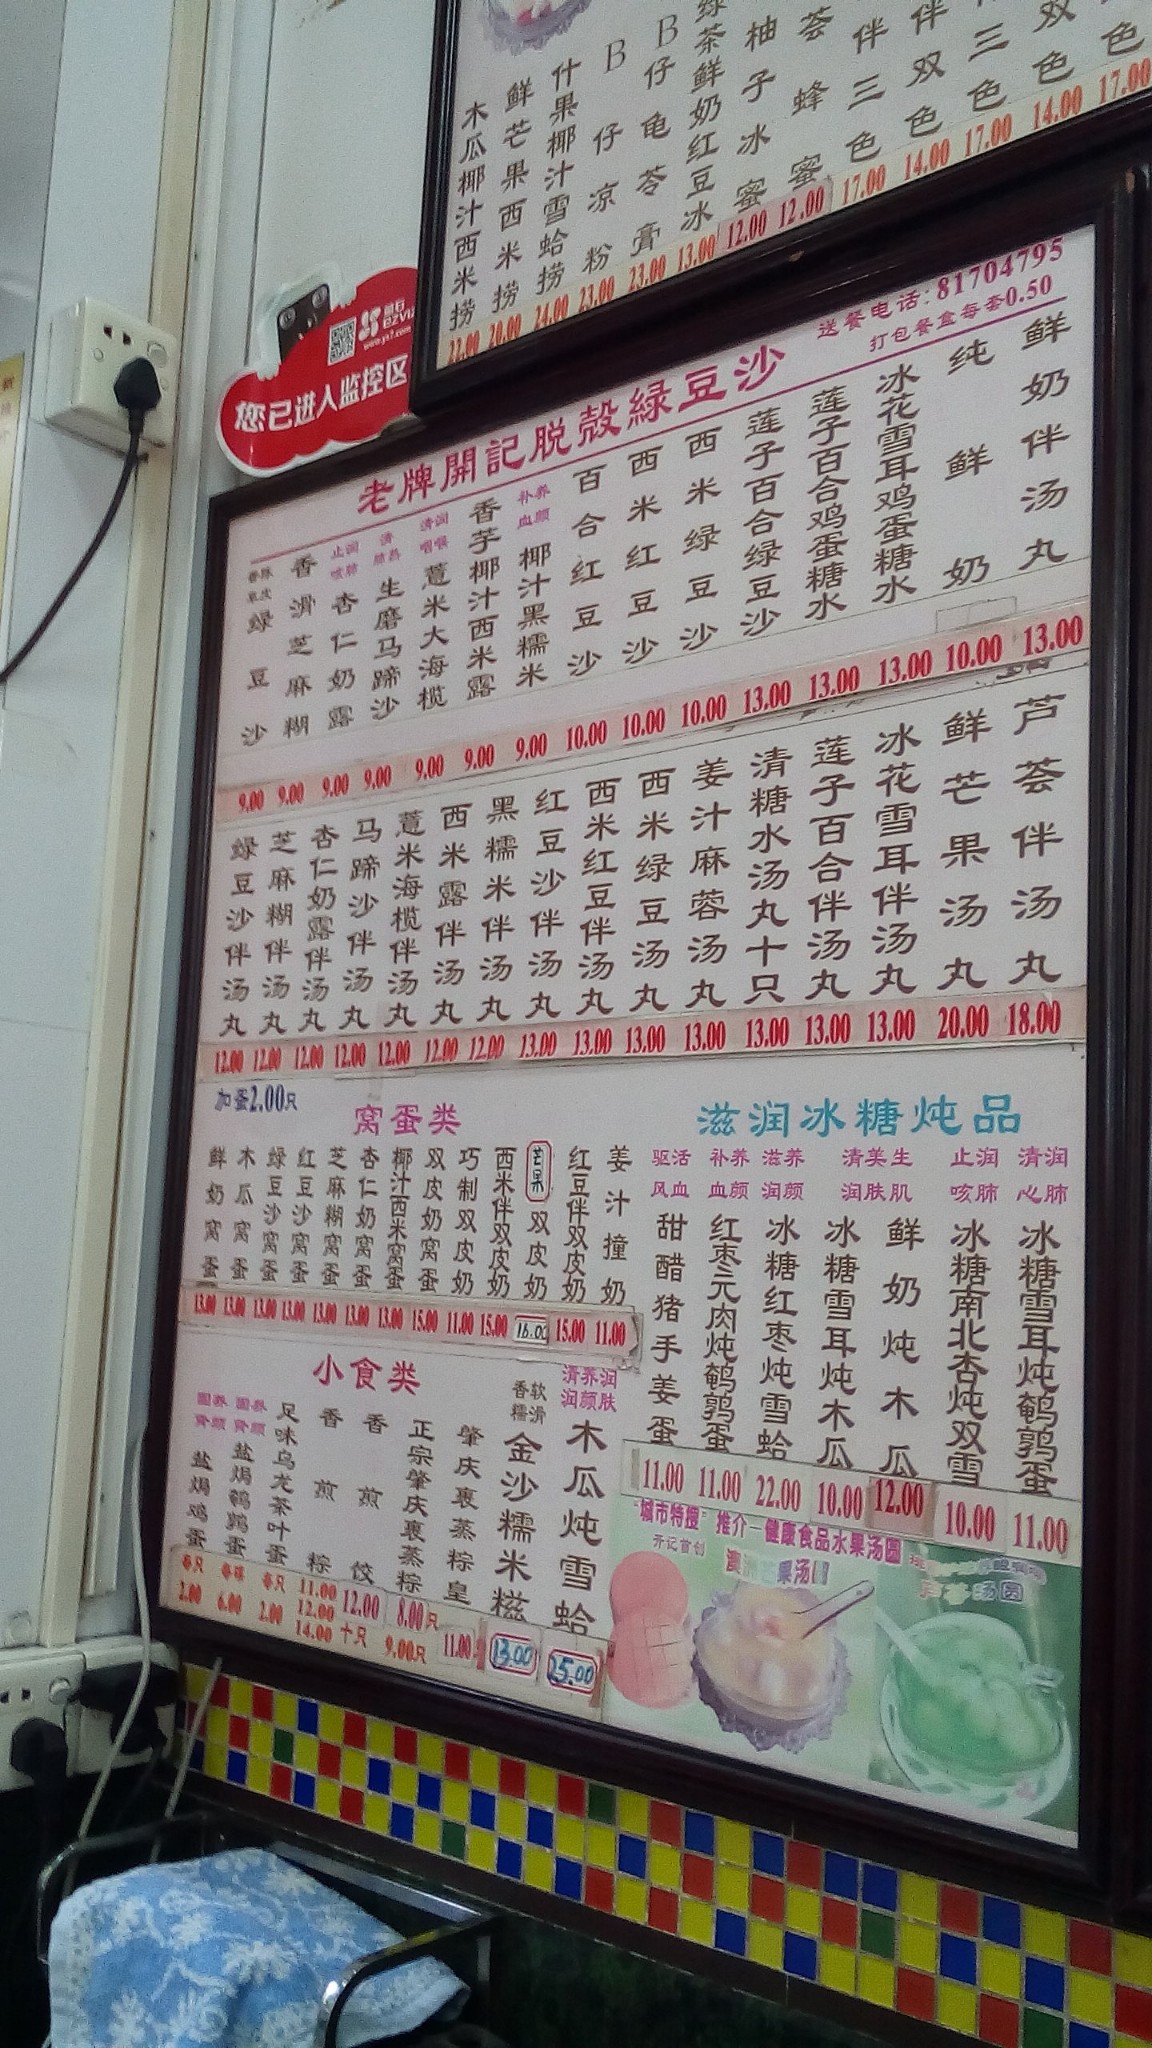 木瓜椰汁西米捞 22.00
鲜芒果西米捞 20.00
什果椰汁雪蛤捞 24.00
B仔凉粉 23.00
B仔龟苓膏 23.00
绿茶鲜奶红豆冰 13.00
柚子冰蜜 12.00
荟蜂蜜 12.00
伴三色 17.00
伴双色 14.00
三色 17.00
双色 14.00
色 17.00
您已进入监控区
www.ys7.com
送餐电话:81704795
打包餐盒每套0.50
老牌開記脱殼緑豆沙
绿豆沙 9.00
香滑芝麻糊 9.00
止咳润肺 杏仁奶露 9.00
清肺热 生磨马蹄沙 9.00
清润咽喉 薏米大海榄 9.00
香芋椰汁西米露 9.00
补血养颜 椰汁黑糯米 9.00
百合红豆沙 10.00
西米红豆沙 10.00
西米绿豆沙 10.00
莲子百合绿豆沙 13.00
莲子百合鸡蛋糖水 13.00
冰花雪耳鸡蛋糖水 13.00
纯鲜奶 10.00
鲜奶伴汤丸 13.00
绿豆沙伴汤丸 12.00
芝麻糊伴汤丸 12.00
杏仁奶露伴汤丸 12.00
马蹄沙伴汤丸 12.00
薏米海榄伴汤丸 12.00
西米露伴汤丸 12.00
黑糯米伴汤丸 12.00
红豆沙伴汤丸 13.00
西米红豆伴汤丸 13.00
西米绿豆汤丸 13.00
姜汁麻蓉汤丸 13.00
清糖水汤丸十只 13.00
莲子百合伴汤丸 13.00
冰花雪耳伴汤丸 13.00
鲜芒果汤丸 20.00
芦荟伴汤丸 18.00
加蛋2.00只
窝蛋类
鲜奶窝蛋 13.00
木瓜窝蛋 13.00
绿豆沙窝蛋 13.00
红豆沙窝蛋 13.00
芝麻糊窝蛋 13.00
杏仁奶窝蛋 13.00
椰汁西米窝蛋 13.00
双皮奶窝蛋 15.00
巧制双皮奶 11.00
西米伴双皮奶 15.00
芒果双皮奶 16.00
红豆伴双皮奶 15.00
姜汁撞奶 11.00
滋润冰糖炖品
驱风活血 甜醋猪手姜蛋 11.00
补血养颜 红枣元肉炖鹌鹑蛋 11.00
滋润养颜 冰糖红枣炖雪蛤 22.00
清润美肤生肌
冰糖雪耳炖木瓜 10.00
鲜奶炖木瓜 12.00
止咳润肺 冰糖南北杏炖双雪 10.00
清心润肺 冰糖雪耳炖鹌鹑蛋 11.00
小食类
固肾养颜 盐焗鸡蛋 每只 2.00
固肾养颜 盐焗鹌鹑蛋 每碟 6.00
足味乌龙茶叶蛋 每只 2.00
香煎粽 11.00 12.00 14.00
香煎饺 12.00 十只
正宗肇庆裹蒸粽 8.00只 9.00只
肇庆裹蒸粽皇 11.00
香糯软滑 金沙糯米糍 13.00
清润养颜润肤 木瓜炖雪蛤 25.00
"城市特搜"推介—健康食品水果汤圆
开记首创
果汤
汤圆